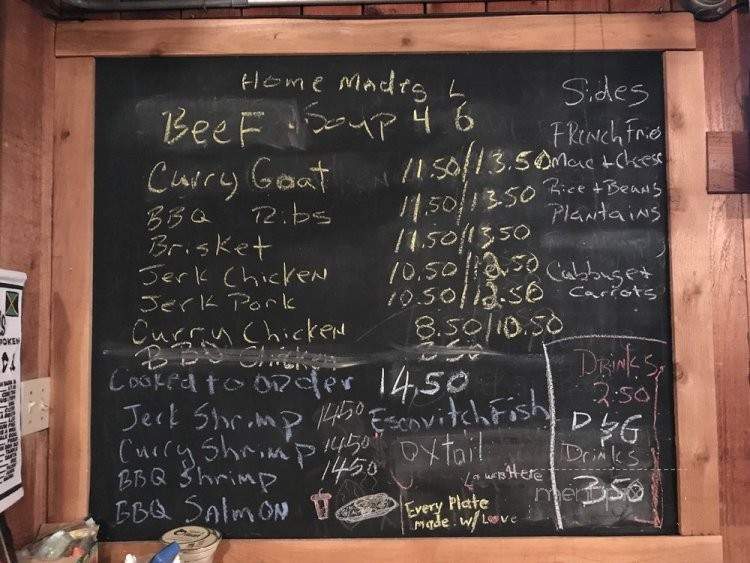 Home Mades L
Beef Soup 4 6
Curry Goat 11.50/13.50
BBQ Ribs 11.50/13.50
Brisket 11.50/13.50
Jerk Chicken 10.50/12.50
Jerk Pork 10.50/12.50
Curry Chicken 8.50/10.50
BBQ Chicken 8.50
Cooked to Order 14.50
Jerk Shrimp 14.50
Curry Shrimp 14.50
BBQ Shrimp 14.50
BBQ Salmon
Escovitch Fish
Oxtail
Every Plate
made w/ Love
Sides
French Fries
Mac + Cheese
Rice + Beans
Plantains
Cabbage +
Carrots
Drinks
2.50
D&G
Drinks
3.50